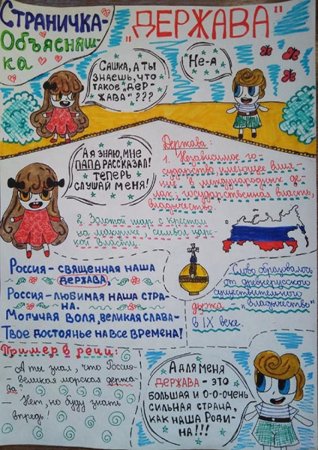 Страничка-
Объясняш-
ка
"ДЕРЖАВА"
Сашка, а ты
знаешь, что
такое "дер-
жава"???
Не-а
А я знаю, мне
папа рассказал!
Теперь
слушай меня!
Держава:
1. Независимое го-
сударство имеющее
в международных де-
лах, государственная власть,
владычество
2. Золотой шар с крестом
на макушке, символ
власти
Россия - священная наша
держава,
Россия - любимая наша стра-
на.
Могучая воля, великая слава -
Твое достоянье на все времена!
"Слово образовалось
от древнерусского
существительного
держа - "владычество"
в IX веке.
Пример в речи:
- А ты знал, что Россия-
великая морская держа-
ва?
- Нет, но буду знать
вперёд!
А для меня
держава - это
большая и о-о-очень
сильная страна,
как наша Роди-
на!!!